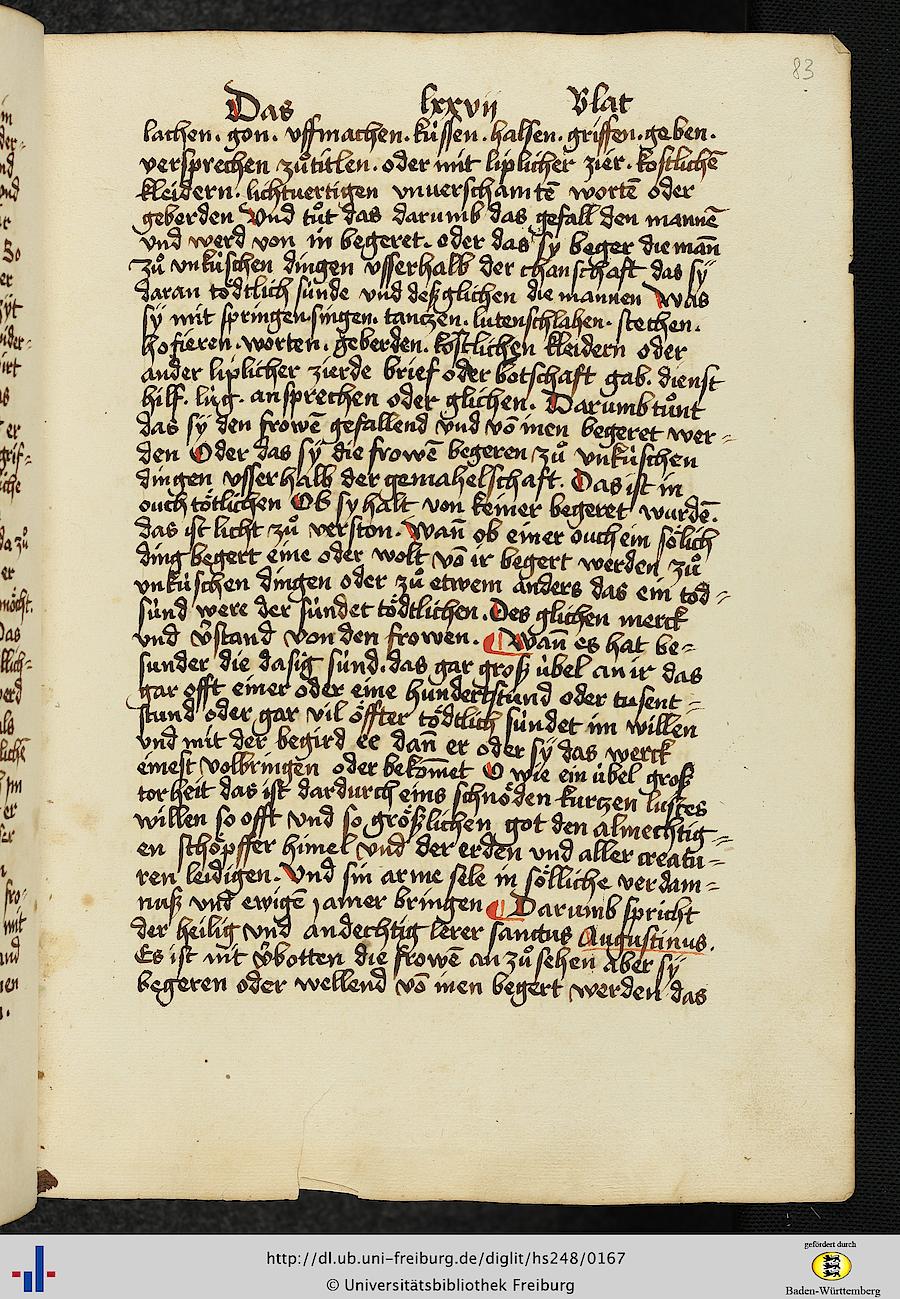 83
Das lxxvii Blat
lachen. gon. vffmachen. küssen. halsen. griffen. geben.
versprechen zůtitlen. oder mit liplicher zier. kostlichē
kleidern. lichtuertigen vnuerschamtē wortē oder
geberden Vnd tůt das darumb das gefall den mannē
vnd werd von in begeret. oder das sy beger die mān
zů vnküschen dingen vsserhalb der ehanschaft das sÿ
daran tödtlich sünde vnd deßglichen die mannen Was
sÿ mit springen. singen. tanczen. lutenschlahen. stechen.
hofieren. worten. geberden. kostlichen kleidern oder
ander liplicher zierde brief oder botschaft gab. dienst
hilf. lüg. ansprechen oder glichen. Darumb tůnt
das sÿ den frowē gefallend vnd vō inen begeret wer=
den Oder das sÿ die frowē begeren zů vnküschen
dingen vsserhalb der gemahelschaft. Das ist in
ouch tötlichen Ob sy halt von keiner begeret wurdē.
das ist licht zů verston. Wañ ob einer ouch ein sölich
ding begert eine oder wolt vō ir begert werden zů
vnküschen dingen oder zů etwem anders das ein tod=
sünd were der sündet tödtlichen. Des glichen merck
vnd v̄stand von den frowen. ¶ Wañ es hat be=
sunder die dasig sünd. das gar groß übel an ir das
gar offt einer oder eine hundertstund oder tusent=
stund oder gar vil öffter tödtlich sündet im willen
vnd mit der begird ee dañ er oder sÿ das werck
einest volbringen oder bekōmet O wie ein übel groß
torheit das ist dardurch eins schnöden kurczen lustes
willen so offt vnd so größlichen got den almechtig=
en schöpffer himel vnd der erden vnd aller creatu=
ren leidigen. Vnd sin arme sele in sölliche verdam=
nuß vnd ewigē jamer bringen ¶ Darumb spricht
der heilig vnd andechtig lerer sanctus Augustinus.
Es ist nit v̄botten die frowē an zů sehen aber sÿ
begeren oder wellend vō inen begert werden das
http://dl.ub.uni-freiburg.de/diglit/hs248/0167
© Universitätsbibliothek Freiburg
gefördert durch
Baden-Württemberg